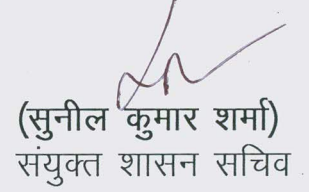 (सुनील कुमार शर्मा)
संयुक्त शासन सचिव